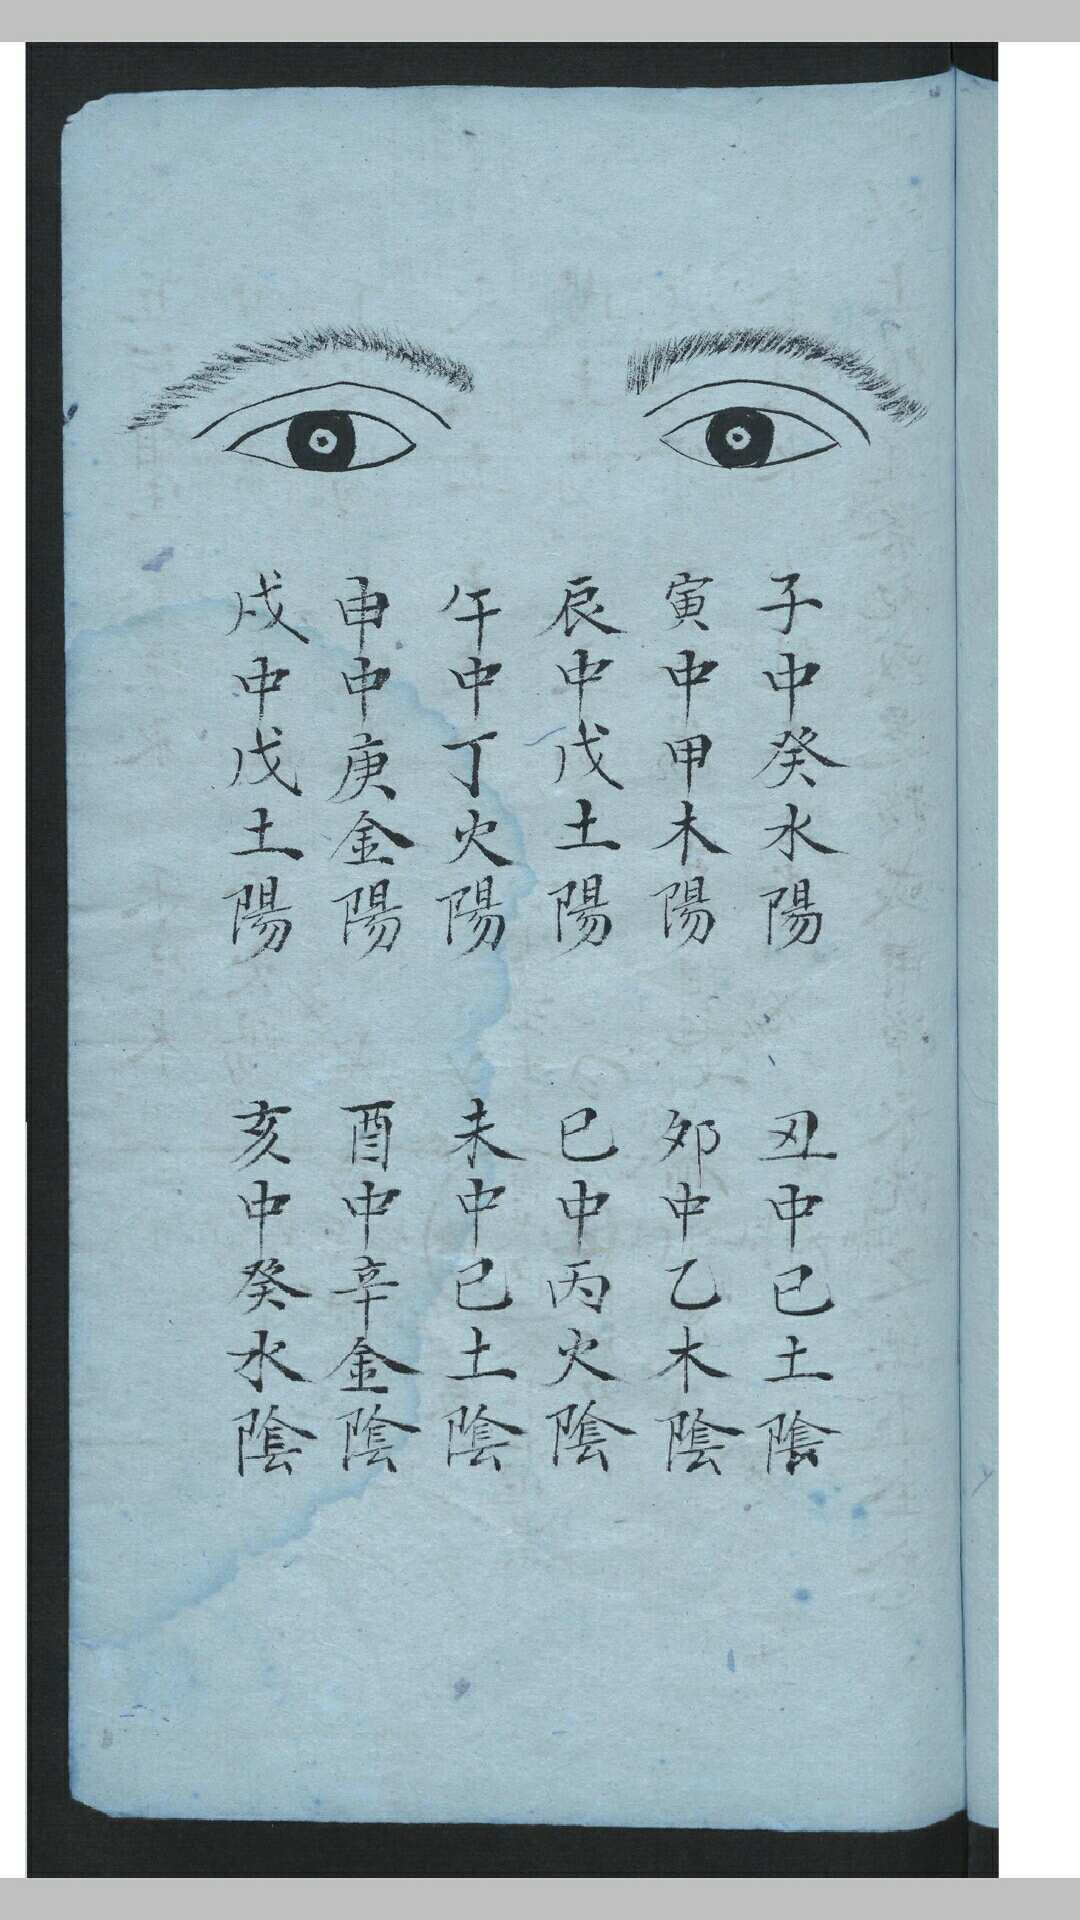 子中癸水陽
寅中甲木陽
辰中戊土陽
午中丁火陽
申中庚金陽
戌中戊土陽
丑中己土陰
夘中乙木陰
巳中丙火陰
未中己土陰
酉中辛金陰
亥中癸水陰